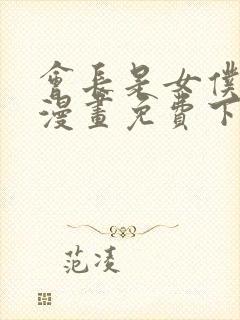 會長是女僕
漫畫免費下
范凌